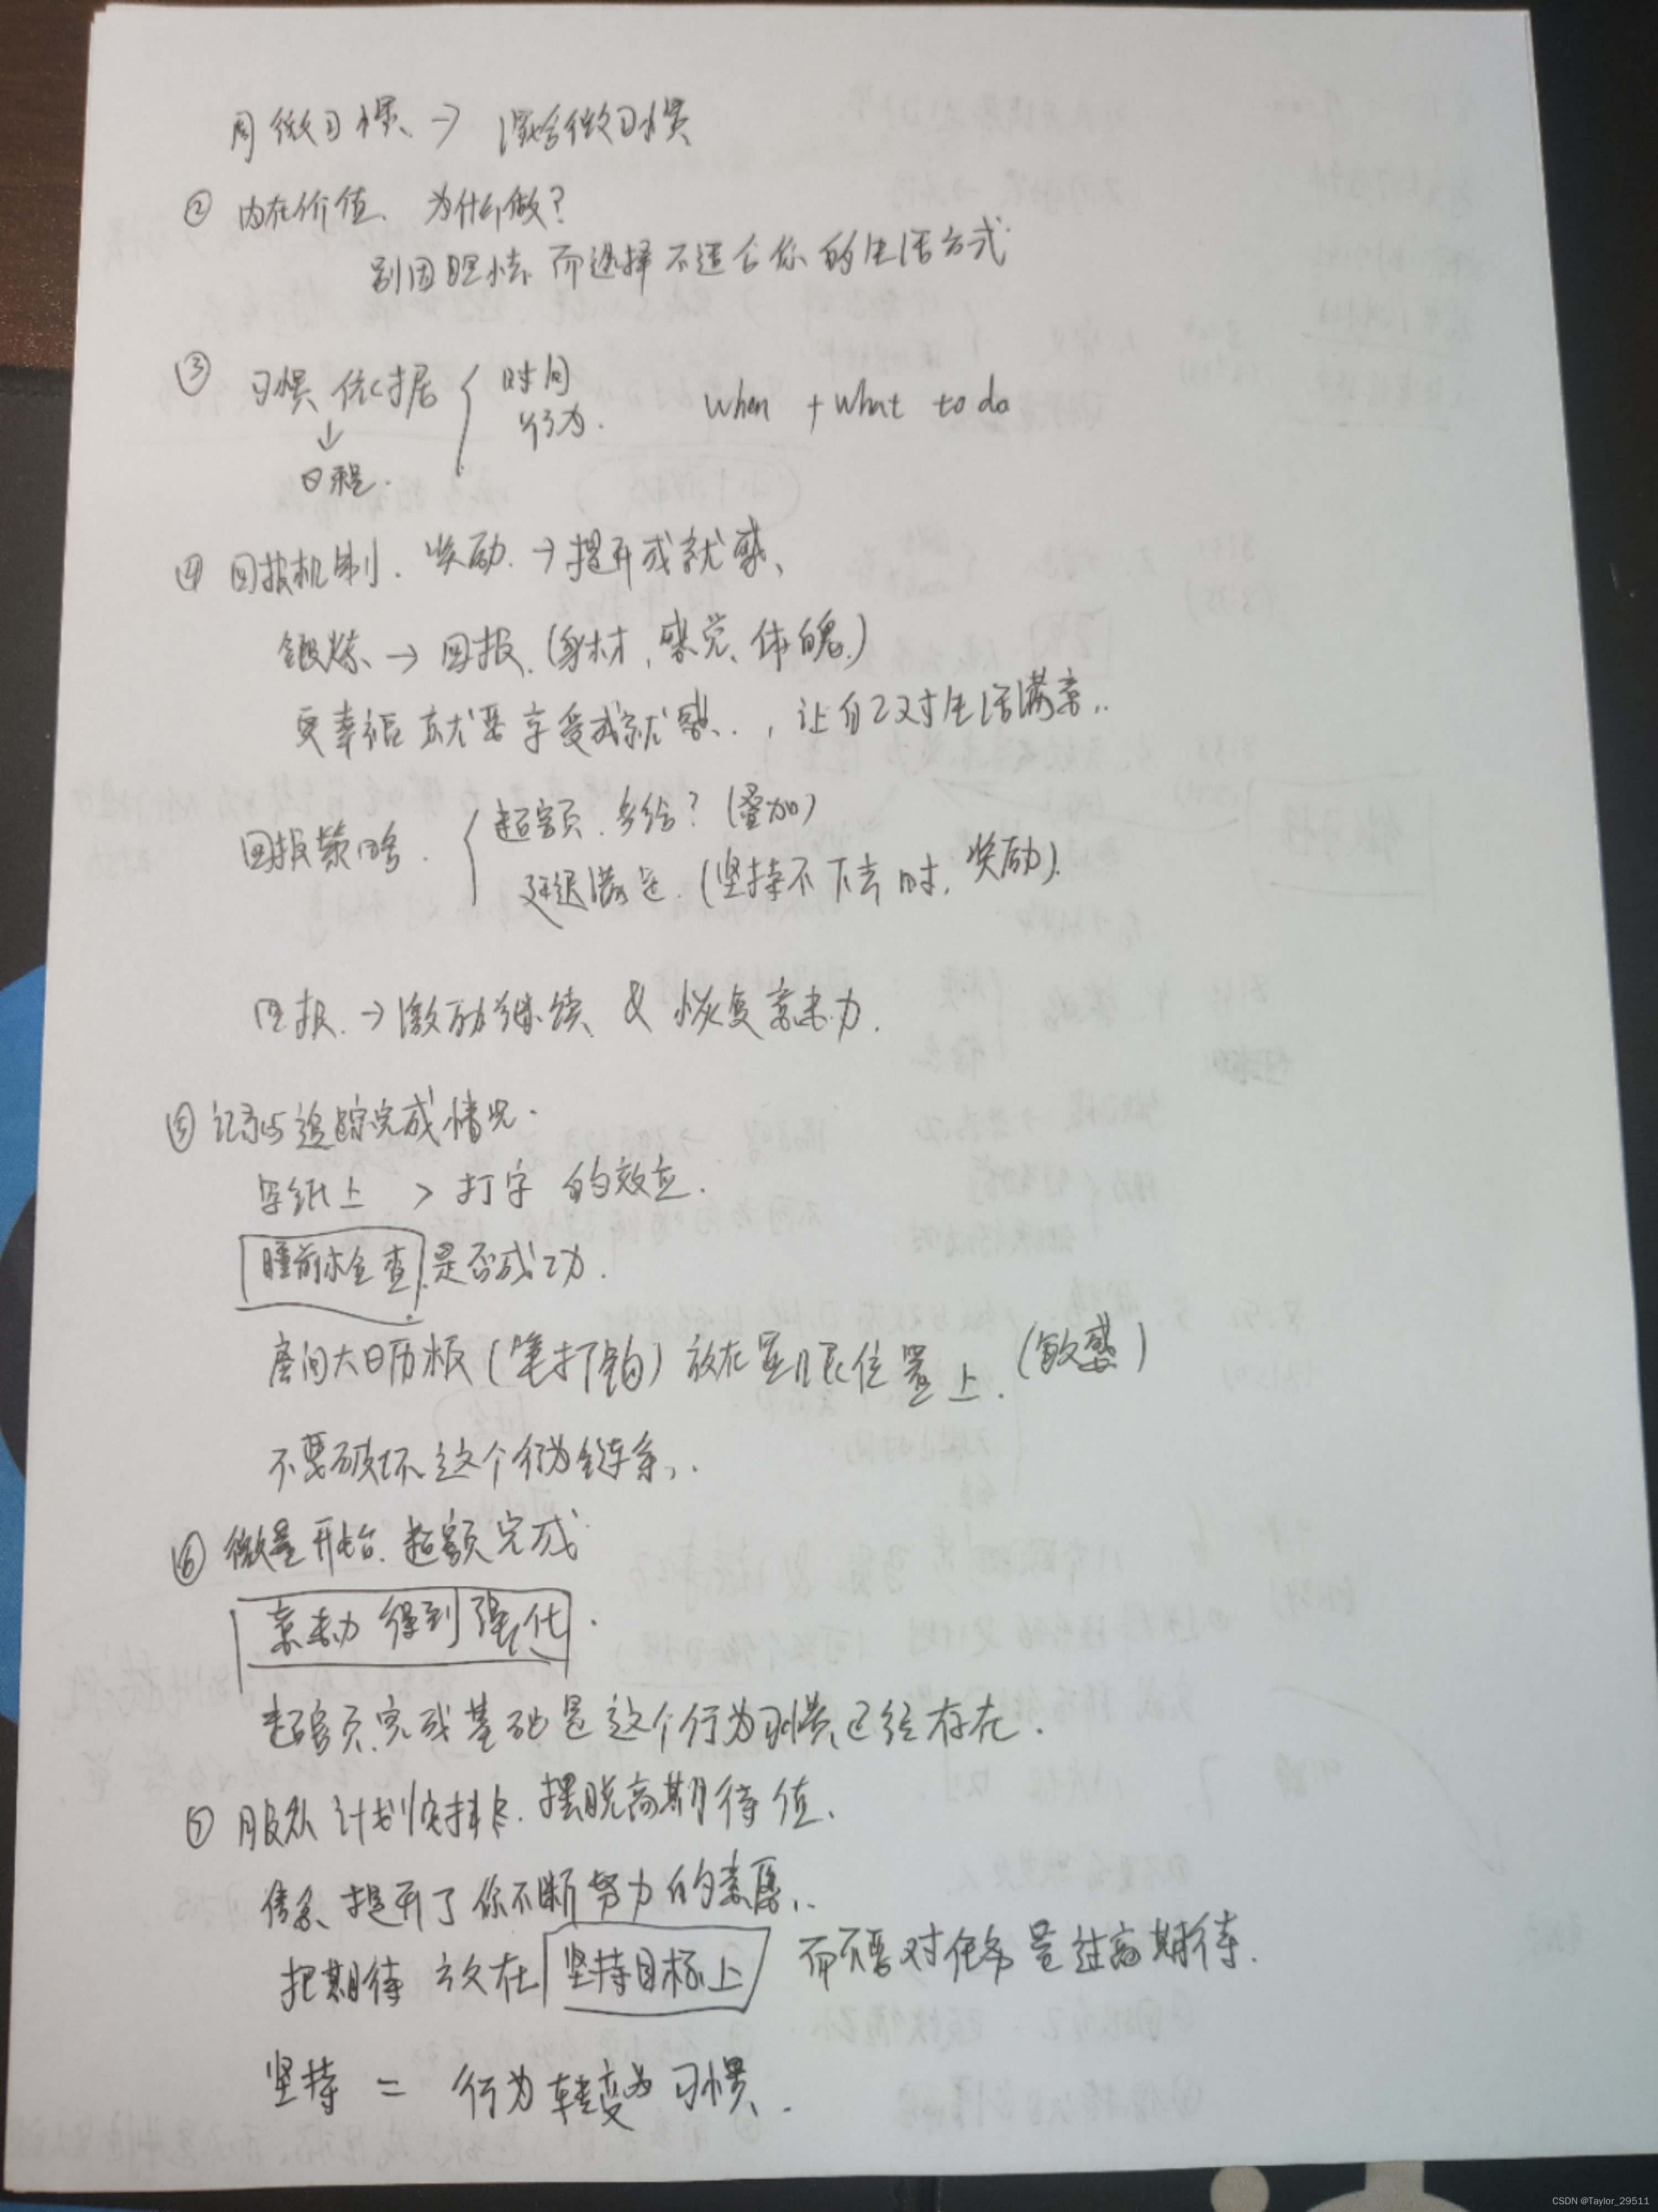 周微习惯 → 混合微习惯
② 内在价值、为什么做？
别因胆怯而选择不适合你的生活方式
③ 习惯依据 { 时间 行为. when + what to do
↓
日程.
④ 回报机制. 奖励 → 提升成就感、
锻炼 → 回报 (身材, 感觉、体魄)
更幸福就要享受成就感.., 让自己对生活满意..
回报策略. { 超额、多给? (叠加)
延迟满足. (坚持不下去时, 奖励).
回报 → 激励继续 & 恢复意志力.
⑤ 记录与追踪完成情况.
写纸上 > 打字的效应.
睡前检查 是否成功.
房间大日历板 (笔打钩) 放在显眼位置上. (敏感)
不要破坏这个行为链条..
⑥ 微量开始. 超额完成
意志力得到强化.
超额完成基础是这个行为习惯已经存在.
⑦ 服从计划安排. 摆脱高期待值.
提升了你不断努力的意愿..
把期待放在 坚持目标上 而不要对任务量过高期待.
坚持 = 行为转变为习惯.
CSDN @Taylor_29511